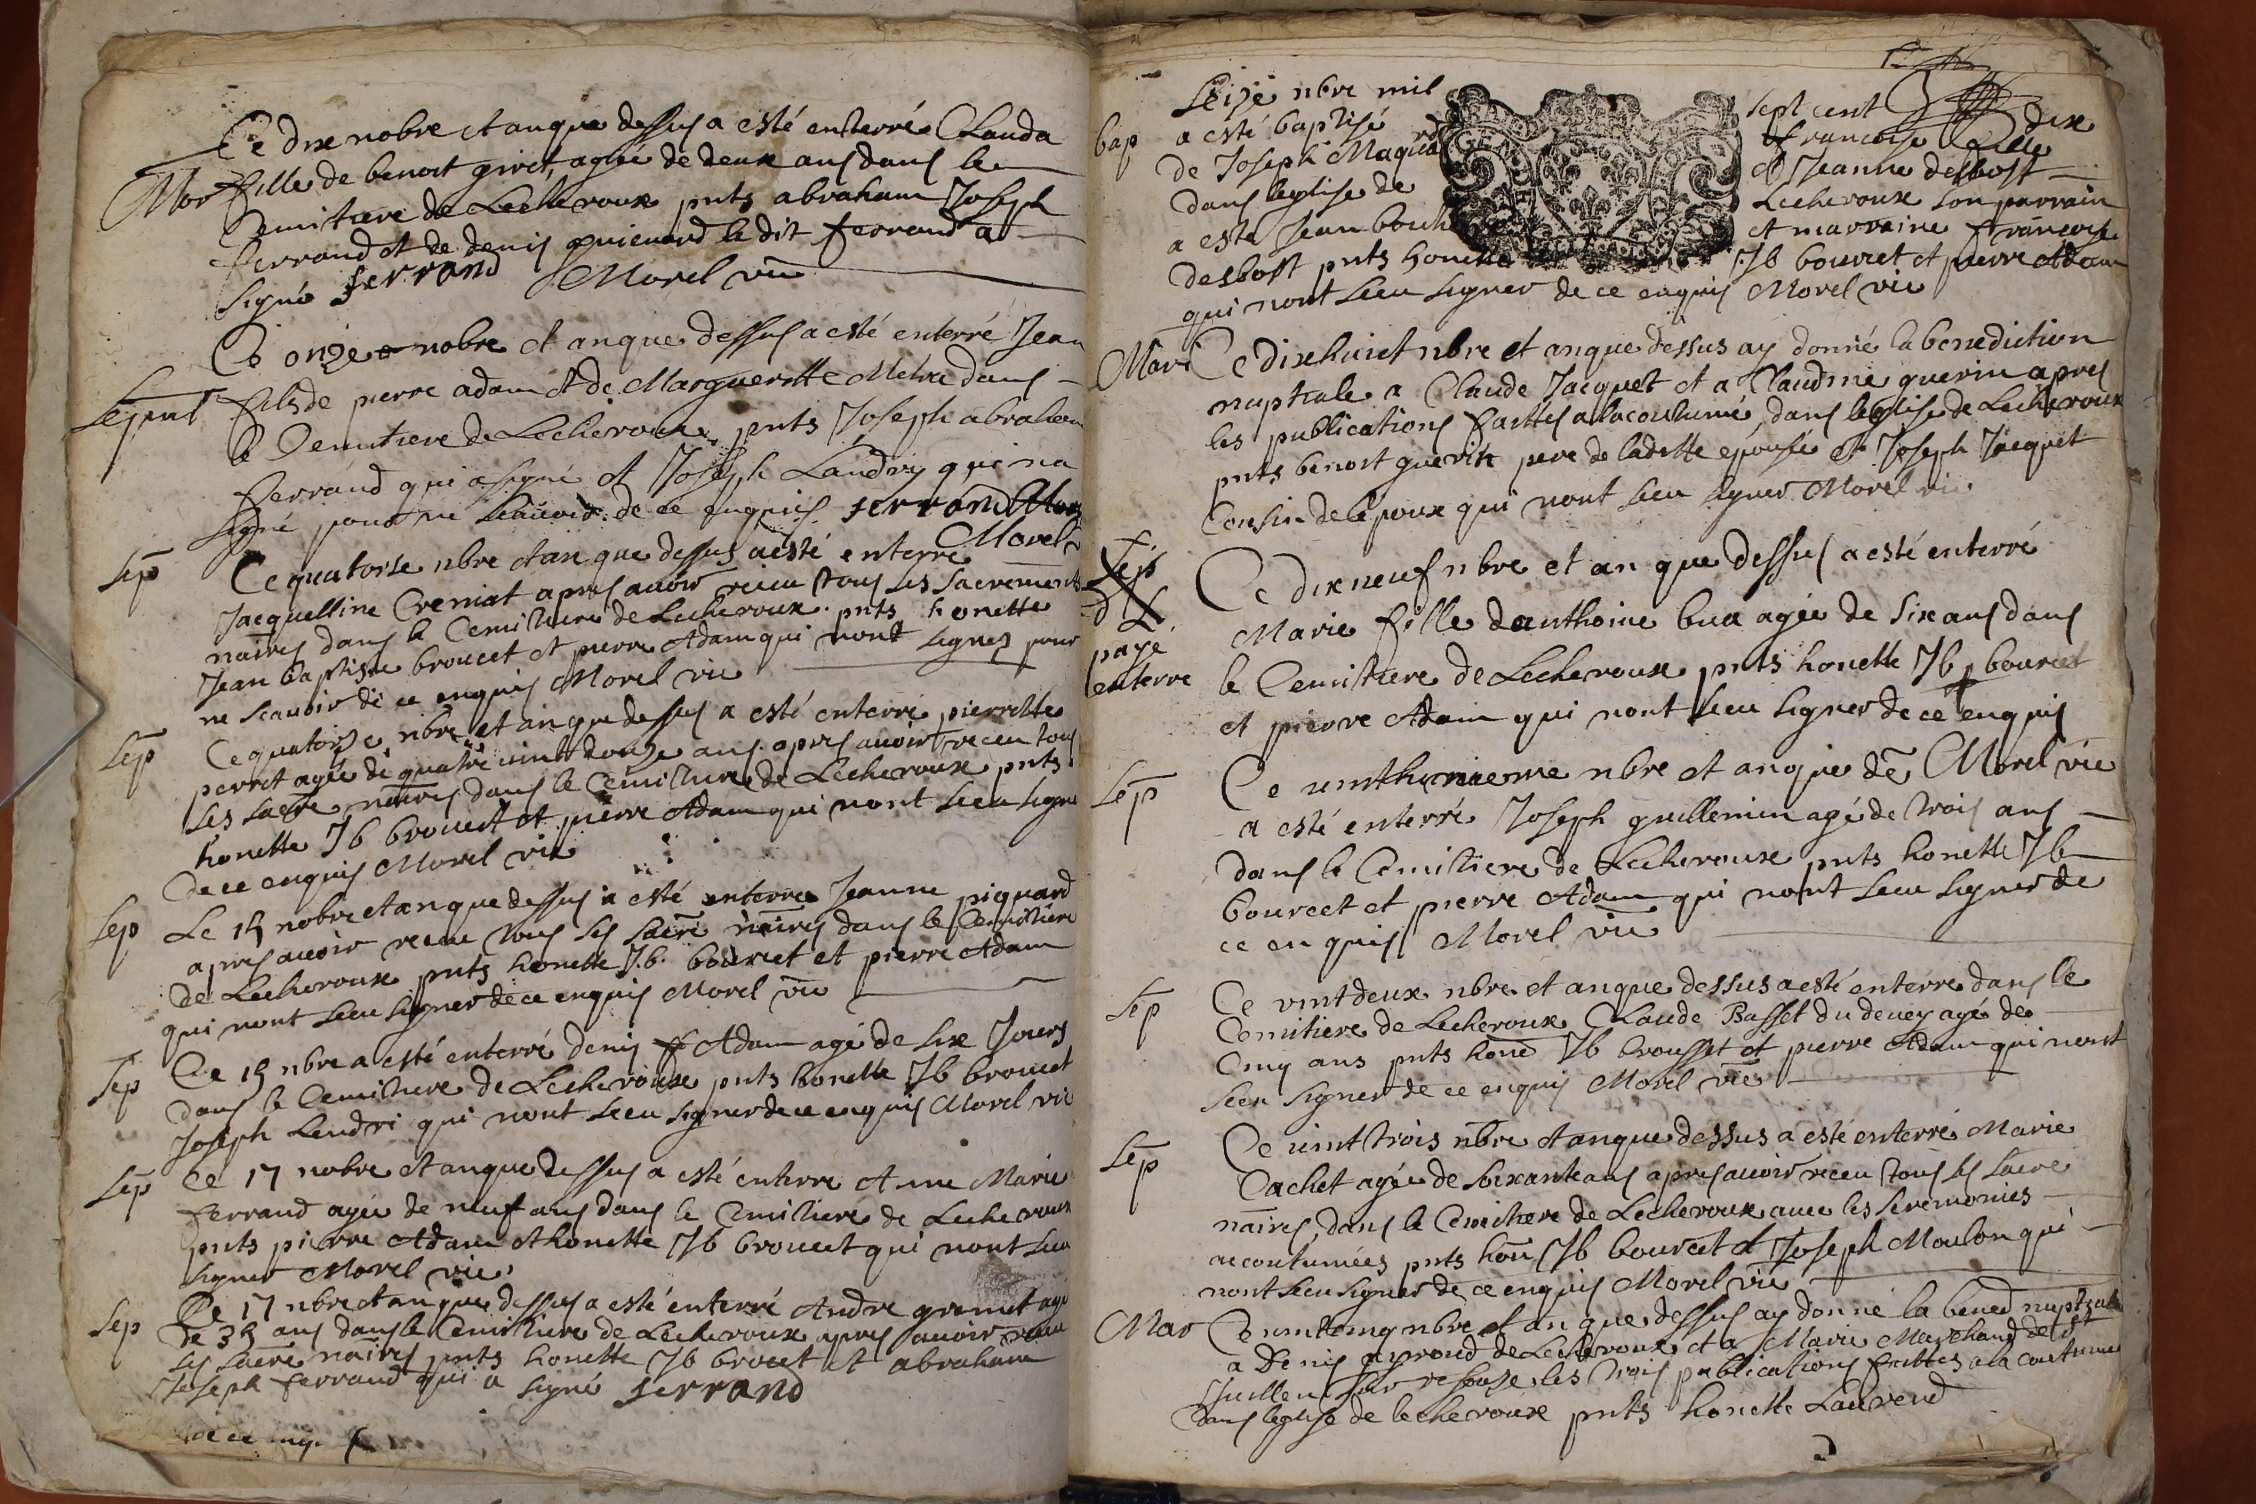 Ce dix nobre et an que dessus a esté enterrée Clauda
Mor fille de benoit givet, agée de deux ans dans le
Cemitiere de Lecheroux pnts abraham Joseph
ferrand et de denis guienard le dit ferrand a
signé ferrand Morel vic
Ce onze nobre et an que dessus a esté enterré Jean
Sepult fils de pierre adam et de Marguerite Metra dans
le Cemitiere de Lecheroux, pnts Joseph abraham
ferrand qui a signé et Joseph Landry qui na
signé pour ne scauoir de ce enquis ferrand
Morel
Sep Ce quatorse nbre et an que dessus a esté enterré
Jacquelline Creniat apres auoir receu tous ses sacrements
naires dans le Cemitiere de Lecheroux pnts honette
Jean baptiste broucet et pierre Adam qui nont signez pour
ne scauoir de ce enquis Morel vic
Sep Ce quatorze nbre et an que dessus a esté enterré pierrette
perret agée de quatre vint douze ans apres auoir receu tous
ses sacre naires dans le Cemitiere de Lecheroux pnts
honette Jb broucet et pierre Adam qui nont sceu signe
de ce enquis Morel vic
Sep Le 15 nobre et an que dessus a esté enterree Jeanne piquard
apres auoir receu tous ses sacre naires dans le Cemitiere
de Lecheroux pnts honette J.b. bourcet et pierre Adam
qui nont sceu signer de ce enquis Morel vic
Sep Ce 15 nbre a esté enterré denis Adam agé de six Jours
dans le Cemitiere de Lecheroux pnts honette Jb broucet
Joseph Lendri qui nont sceu signer de ce enquis Morel vic
Sep Ce 17 nobre et an que dessus a esté enterré Anne Marie
ferrand agée de neuf ans dans le Cemitiere de Lecheroux
pnts pierre Adam et honette Jb broucet qui nont sceu
signer Morel vic
Sep Ce 17 nbre et an que dessus a esté enterré Andre grenet agé
de 35 ans dans le Cemitiere de Lecheroux apres auoir receu
ses sacre naires pnts honette Jb brocet et abraham
Joseph ferrand qui a signé ferrand
de ce enq.
Seize nbre mil sept cent dix
bap a esté baptisé francoise fille
de Joseph Maquard et Jeanne desbost
dans leglise de Lecheroux son parrain
a esté Jean et marraine francoise
desbost pnts honette Jb bourcet et pierre Adam
qui nont sceu signer de ce enquis Morel vic
Mari Ce dixhuict nbre et an que dessus ay donné la benediction
nuptiale a Claude Jacquet et a Claudine guerin apres
les publications faittes a la coutume, dans leglise de Lecheroux
pnts benoit guerin pere de laditte epousée et Joseph Jacquet
Cousin de lepoux qui nont sceu signer Morel vic
Sep Ce dix neuf nbre et an que dessus a esté enterré
Marie fille danthoine bua agée de six ans dans
payé
enterre le Cemitiere de Lecheroux pnts honette Jb bourcet
et pierre Adam qui nont sceu signer de ce enquis
Sep Ce vinthunieme nbre et an que de Morel vic
a esté enterré Joseph guillemin agé de trois ans
dans le Cemitiere de Lecheroux pnts honette Jb
bourcet et pierre Adam qui nont sceu signer de
ce enquis Morel vic
Sep Ce vint deux nbre et an que dessus a esté enterre dans le
Cemitiere de Lecheroux Claude Basset du devey agé de
Cinq ans pnts hone Jb brousset et pierre Adam qui nont
sceu signer de ce enquis Morel vic
Sep Ce vint trois nbre et an que dessus a esté enterré Marie
Cachet agée de soixante ans apres auoir receu tous ses sacre
naires, dans le Cemitiere de Lecheroux auec les seremonies
accoutumées pnts hon Jb bourcet et Joseph Moulon qui
nont sceu signer de ce enquis Morel vic
Mar Ce vint cinq nbre et an que dessus ay donné la bened nuptiale
a Denis ayrond de Lecheroux et a Marie Marchand de st
Juillen sur resouze les trois publications faittes a la coutume
dans leglise de lecheroux pnts honette Laurend